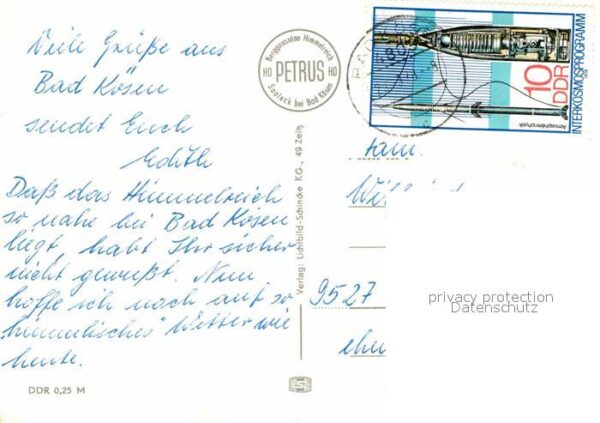 Viele Grüße aus
Bad Kösen
sendet Euch
Edith
Daß das Himmelreich
so nahe bei Bad Kösen
liegt, habt Ihr sicher
nicht gewußt. Nun
hoffe ich noch auf so
"himmlisches" Wetter wie
heute.
DDR 0,25 M
Berggaststätte Himmelreich
HO PETRUS HO
Saaleck bei Bad Kösen
Verlag: Lichtbild-Schincke KG., 49 Zeitz
10
DDR
INTERKOSMOSPROGRAMM
Atmosphärenphysik
Fam.
9527
privacy protection
Datenschutz